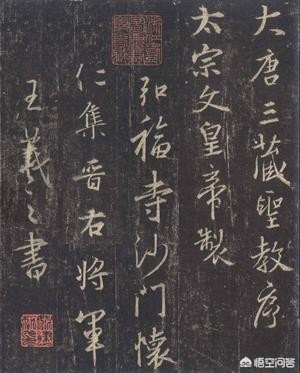 大唐三藏聖教序
太宗文皇帝製
弘福寺沙門懷
仁集晉右將軍
王羲之書
悟空问答